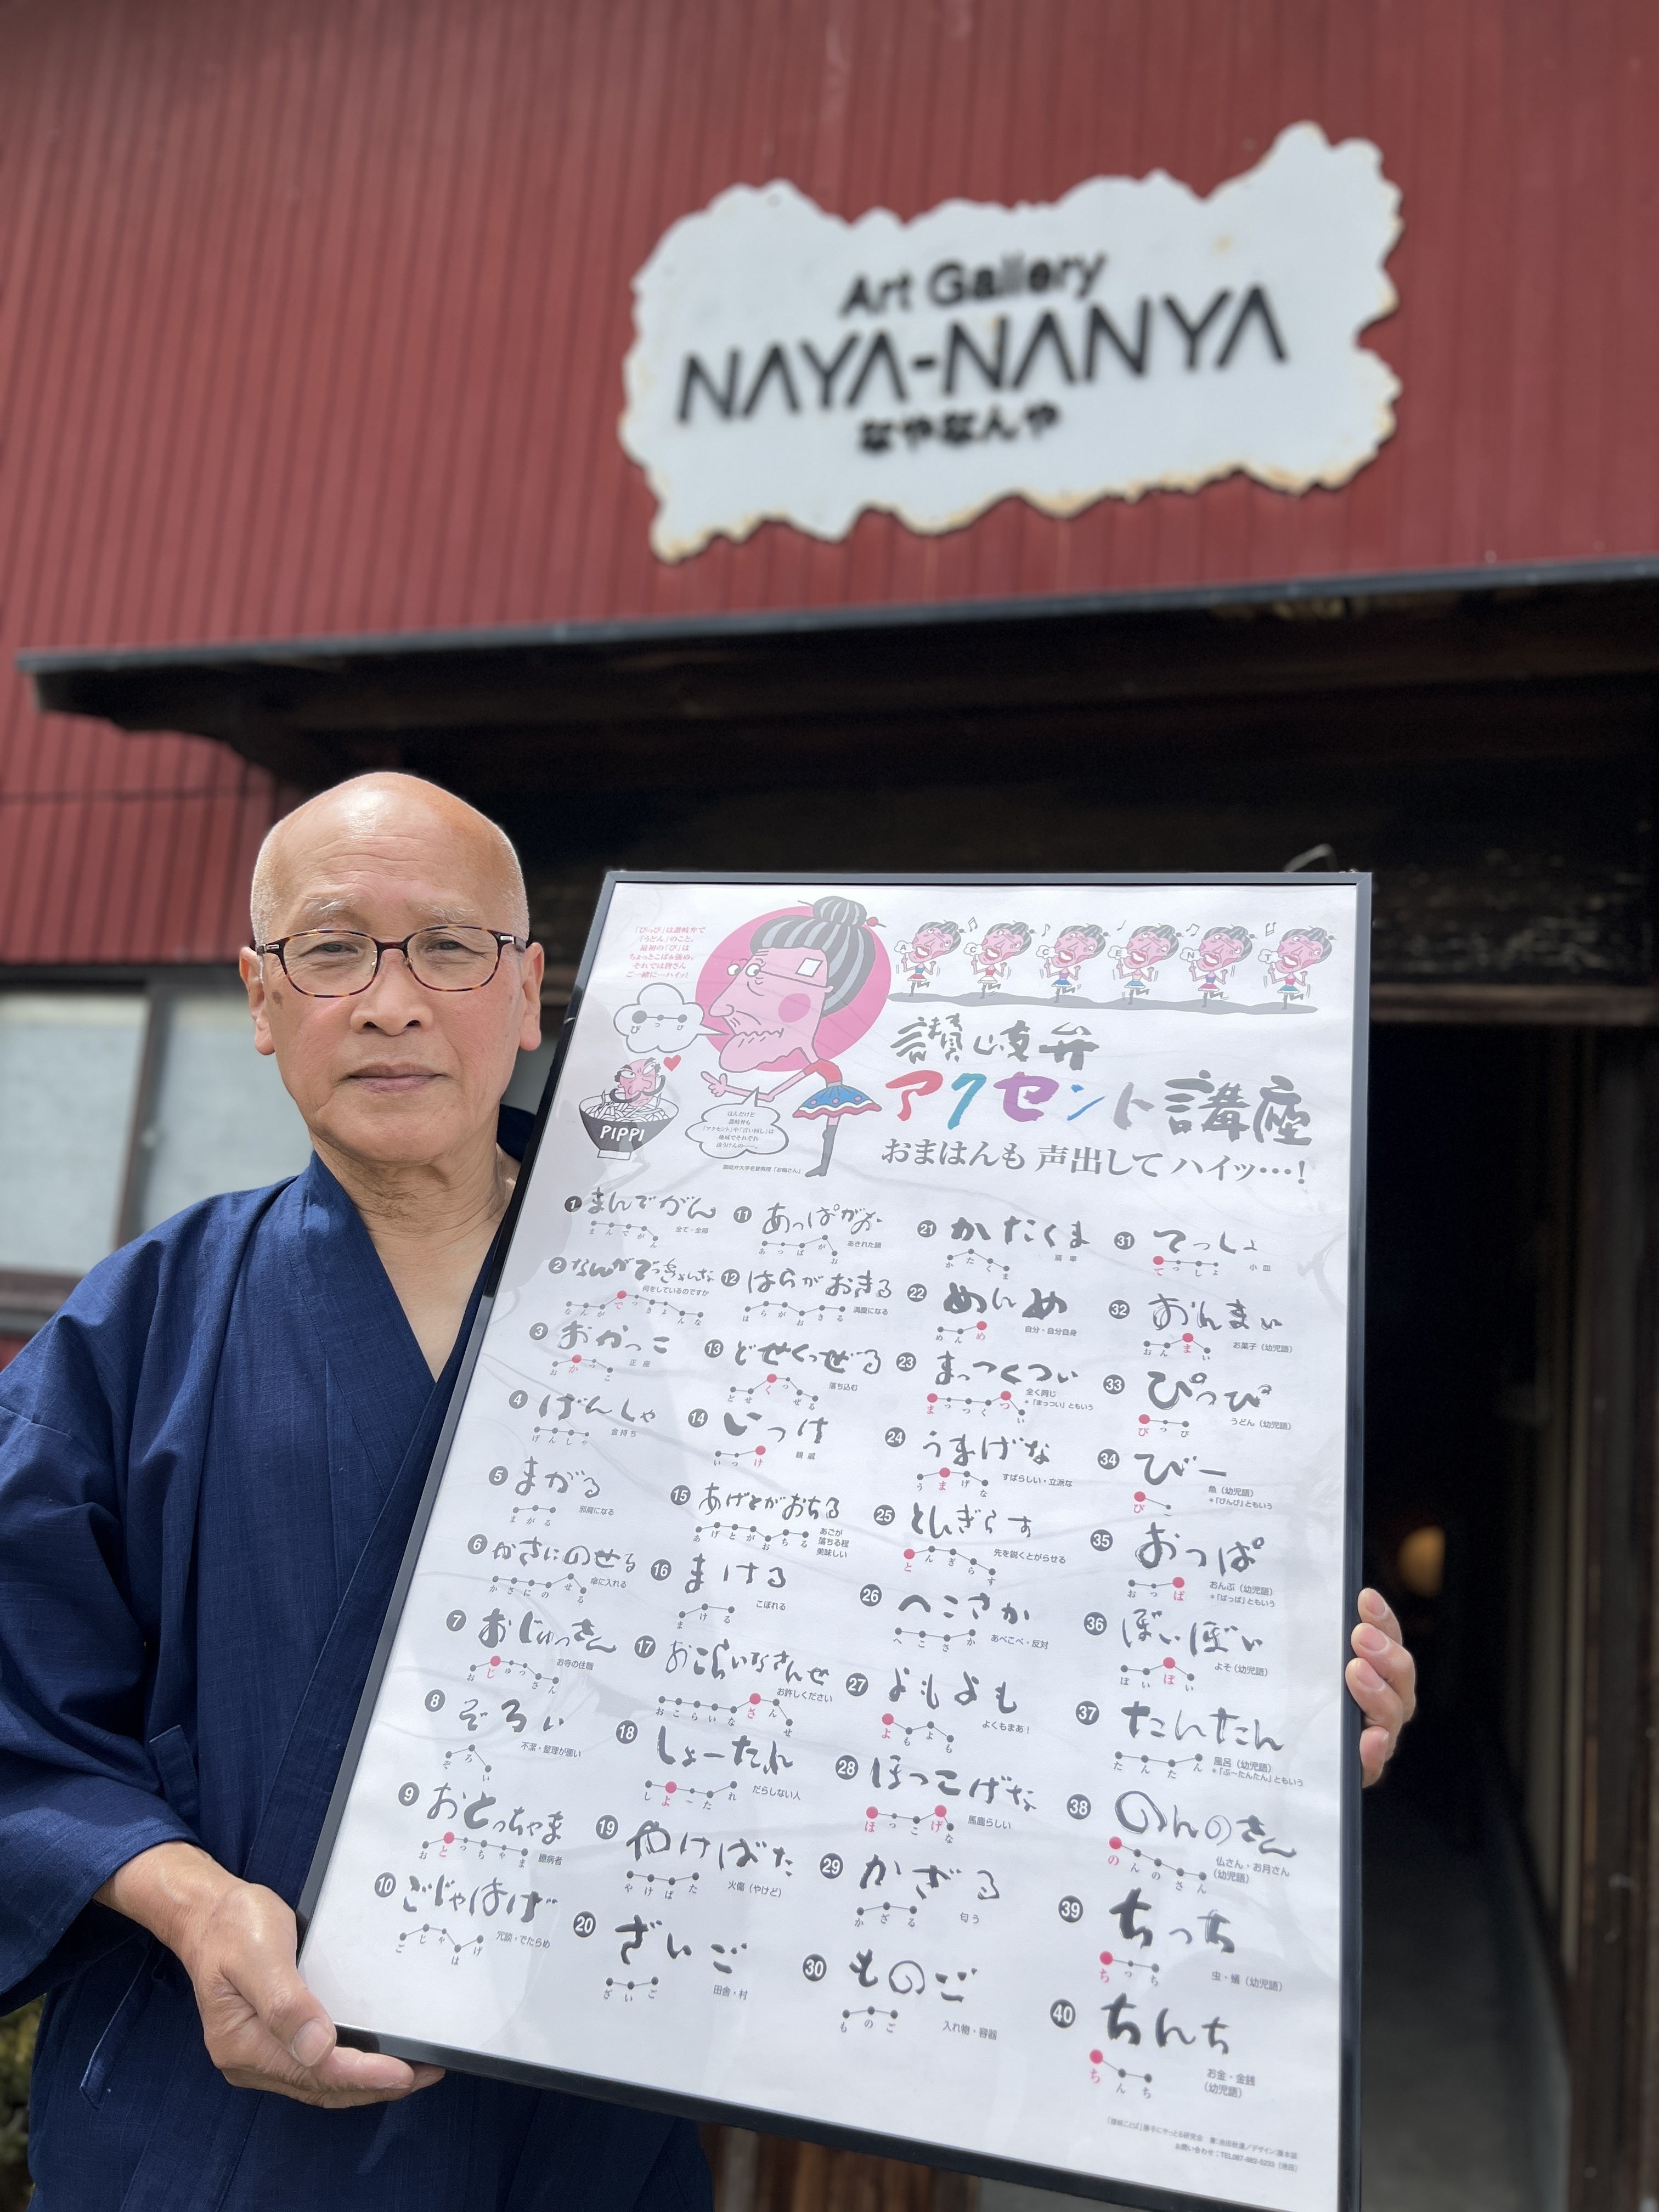 Art Gallery
NAYA-NANYA
なやなんや
「ぴっぴ」は讃岐弁で
「うどん」のこと。
最初の「ぴ」は
ちょっとこばぁ強め。
それでは皆さん
ご一緒に…ハイッ!
ぴっぴ
PIPPI
ほんだけど
讃岐弁も
「アクセント」や「言い回し」は
地域でそれぞれ
違うけんの――。
A C C E N T
讃岐弁
アクセント講座
おまはんも 声出して ハイッ…!
1 まんでがん
まんでがん
全て・全部
2 なんがでっきょんな
なんがでっきょんな
何をしているのですか
3 おかっこ
おかっこ
正座
4 げんしゃ
げんしゃ
金持ち
5 まがる
まがる
邪魔になる
6 かさにのせる
かさにのせる
傘に入れる
7 おじゅっさん
おじゅっさん
お寺の住職
8 ぞろい
ぞろい
不潔・整理が悪い
9 おとっちゃま
おとっちゃま
臆病者
10 ごじゃはげ
ごじゃはげ
冗談・でたらめ
11 あっぱがお
あっぱがお
あきれた顔
12 はらがおきる
はらがおきる
満腹になる
13 どせくっぜる
どせくっぜる
落ち込む
14 いっけ
いっけ
親戚
15 あげとがおちる
あげとがおちる
あごが
落ちる程
美味しい
16 まける
まける
こぼれる
17 おこらいなさんせ
おこらいなさんせ
お許しください
18 しょーたれ
しょーたれ
だらしない人
19 やけばた
やけばた
火傷(やけど)
20 ざいご
ざいご
田舎・村
21 かたくま
かたくま
肩車
22 めんめ
めんめ
自分・自分自身
23 まっつくつい
まっつくつい
全く同じ
*「まっつい」ともいう
24 うまげな
うまげな
すばらしい・立派な
25 とんぎらす
とんぎらす
先を鋭くとがらせる
26 へこさか
へこさか
あべこべ・反対
27 よもよも
よもよも
よくもまあ!
28 ほっこげな
ほっこげな
馬鹿らしい
29 かざる
かざる
匂う
30 ものご
ものご
入れ物・容器
31 てっしょ
てっしょ
小皿
32 おんまい
おんまい
お菓子(幼児語)
33 ぴっぴ
ぴっぴ
うどん(幼児語)
34 びー
びー
魚(幼児語)
*「びんび」ともいう
35 おっぱ
おっぱ
おんぶ(幼児語)
*「ばっぱ」ともいう
36 ぼいぼい
ぼいぼい
よそ(幼児語)
37 たんたん
たんたん
風呂(幼児語)
*「ぶーたんたん」ともいう
38 のんのさん
のんのさん
仏さん・お月さん
(幼児語)
39 ちっち
ちっち
虫・蟻(幼児語)
40 ちんち
ちんち
お金・金銭
(幼児語)